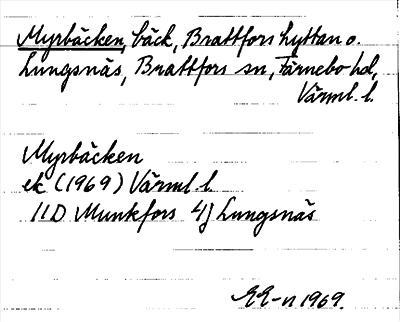 Myrbäcken, bäck, Brattforshyttan o.
Lungsnäs, Brattfors sn, Färnebo hd,
Värml. l.
Myrbäcken
ek (1969) Värml. l.
11D Munkfors 4j Lungsnäs
1969.